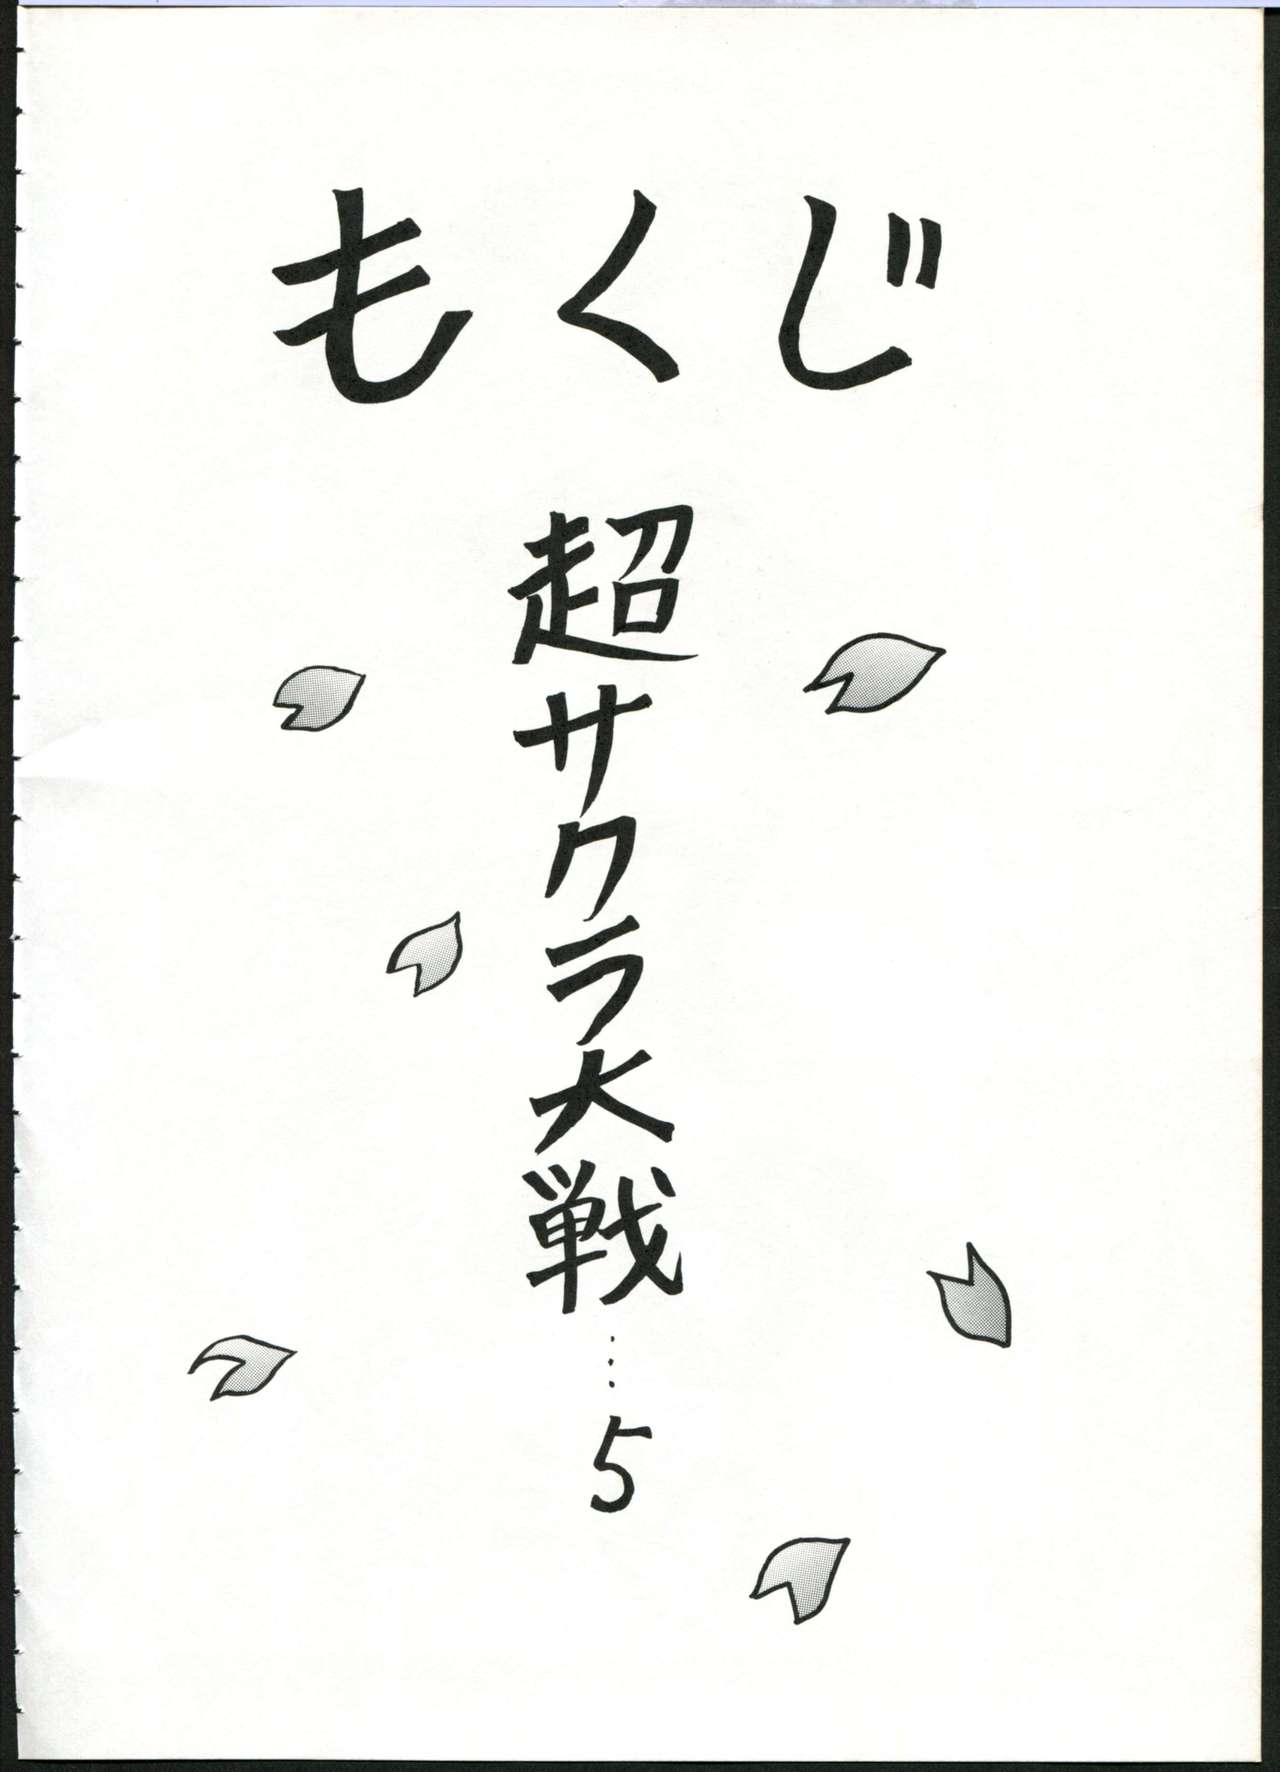 もくじ
超サクラ大戦…5